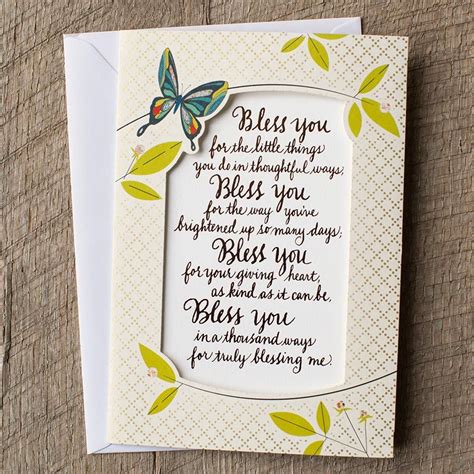 Bless you
for the little things
you do in thoughtful ways;
Bless you
for the way you've
brightened up so many days;
Bless you
for your giving heart,
as kind as it can be,
Bless you
in a thousand ways
for truly blessing me.